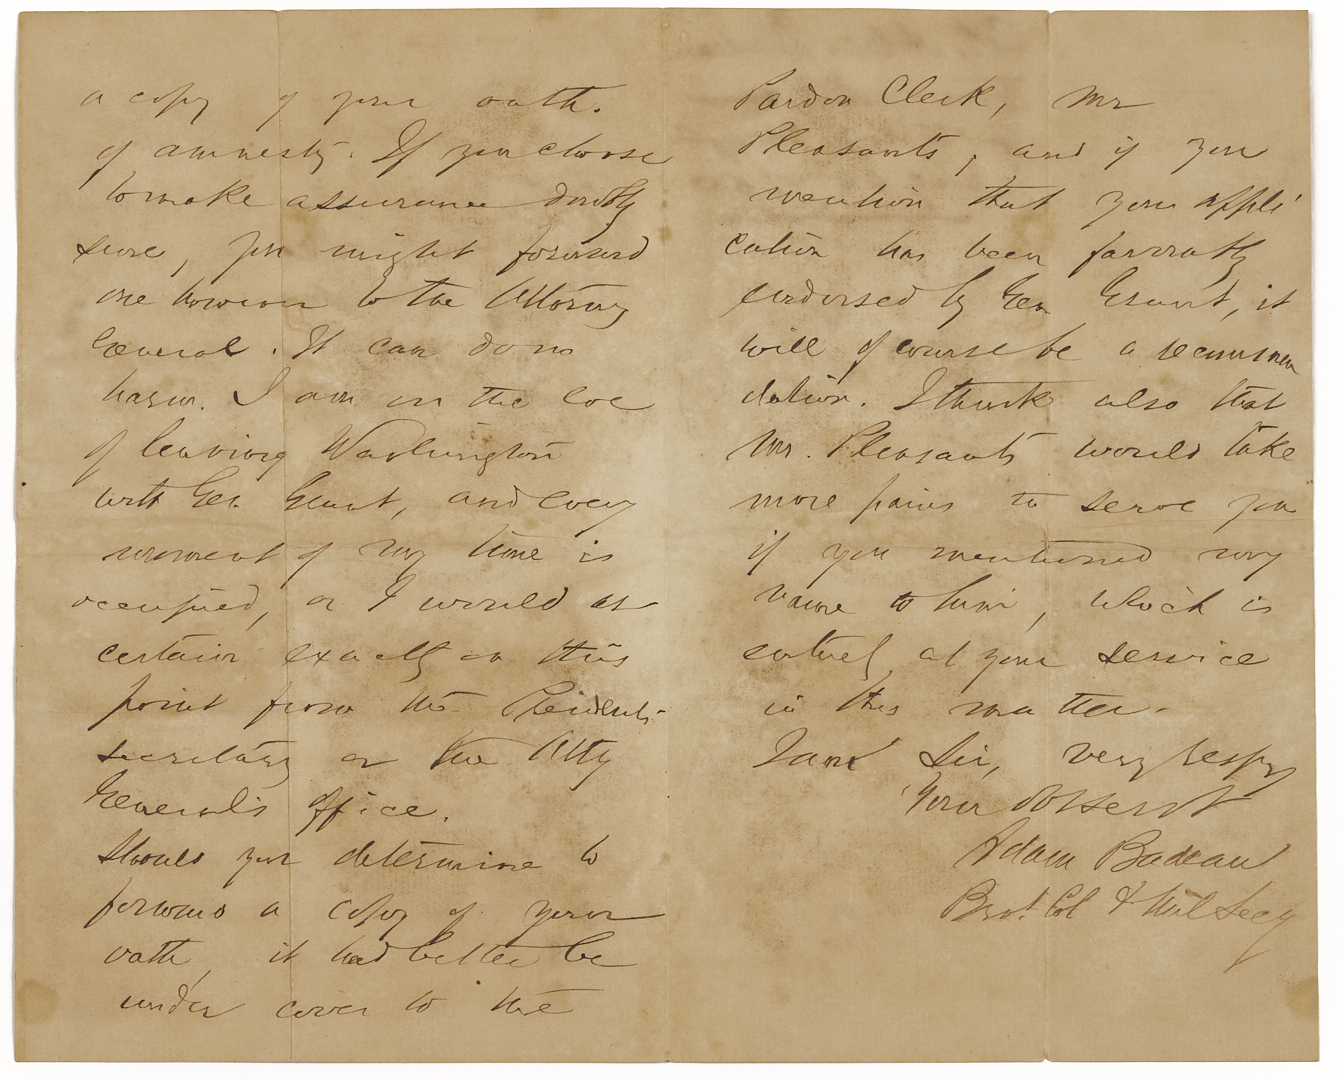 a copy of your oath.
of amnesty. If you choose
to make assurance doubly
sure, you might forward
one however to the Attorney
General. It can do no
harm. I am on the eve
of leaving Washington
with Gen. Grant, and every
moment of my time is
occupied, or I would as
certain exactly on this
point from the Presidents
secretary or the Atty
General's office.
Should you determine to
forward a copy of your
oath, it had better be
under cover to the
Pardon Clerk, Mr
Pleasants, and if you
mention that your appli
cation has been favorably
endorsed by Gen Grant, it
will of course be a recommen
dation. I think also that
Mr. Pleasants would take
more pains to serve you
if you mentioned my
name to him, which is
entirely at your service
in this matter.
I am Sir, very respy
Your obt servt
Adam Badeau
Bvt Col & Mil Secy